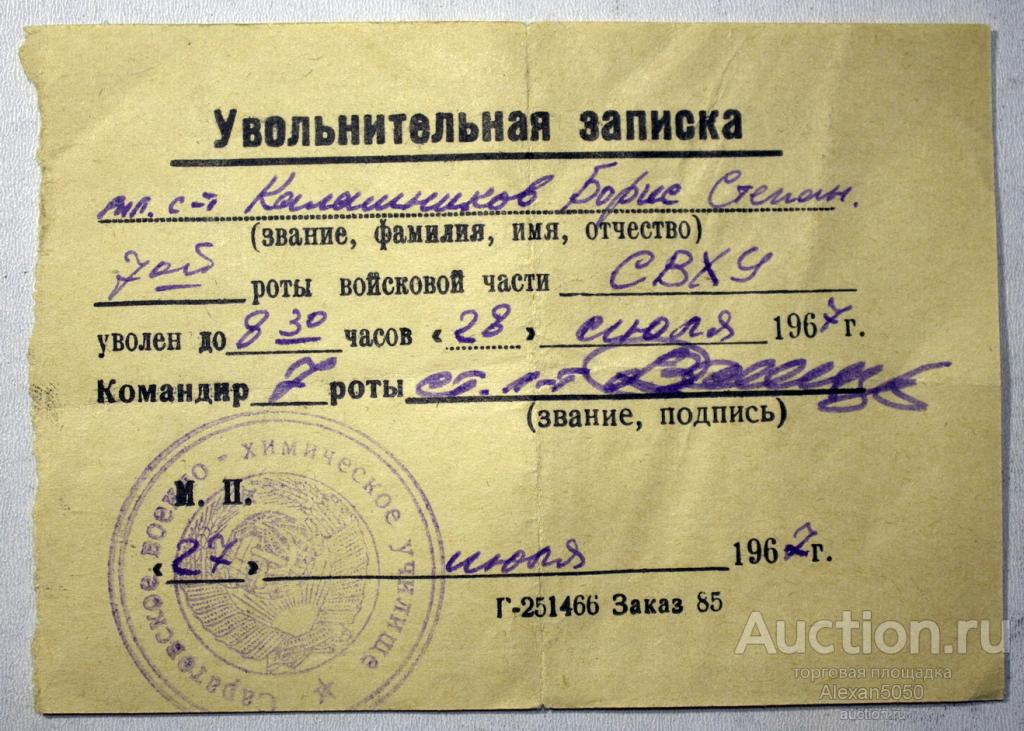 Увольнительная записка
мл. с-т Калашников Борис Степан.
(звание, фамилия, имя, отчество)
7ой роты войсковой части СВХУ
уволен до 8 30 часов «28» июля 1967 г.
Командир 7 роты ст. л-т
(звание, подпись)
М. П.
Саратовское военно-химическое училище
«27» июля 1967 г.
Г-251466 Заказ 85
Auction.ru
торговая площадка
Alexan5050
auction.ru